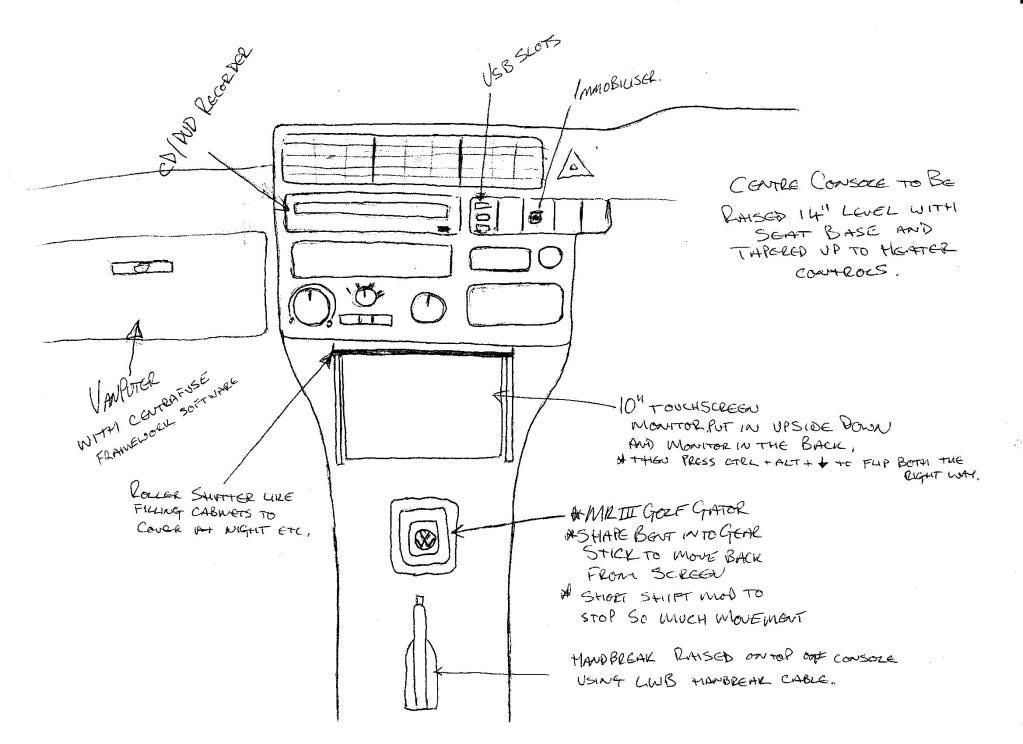 CD/DVD RECORDER
USB SLOTS
IMMOBILISER.
CENTRE CONSOLE TO BE
RAISED 14" LEVEL WITH
SEAT BASE AND
TAPERED UP TO HEATER
CONTROLS.
VANPUTER
WITH CENTRAFUSE
FRAMEWORK SOFTWARE
10" TOUCHSCREEN
MONITOR PUT IN UPSIDE DOWN
AND MONITOR IN THE BACK.
* THEN PRESS CTRL + ALT + ↓ TO FLIP BOTH THE
RIGHT WAY.
ROLLER SHUTTER LIKE
FILLING CABINETS TO
COVER AT NIGHT ETC.
* MK III GOLF GATOR
* SHAPE BENT INTO GEAR
STICK TO MOVE BACK
FROM SCREEN
* SHORT SHIFT MOD TO
STOP SO MUCH MOVEMENT
VW
HANDBREAK RAISED ON TOP OF CONSOLE
USING LWB HANBREAK CABLE.